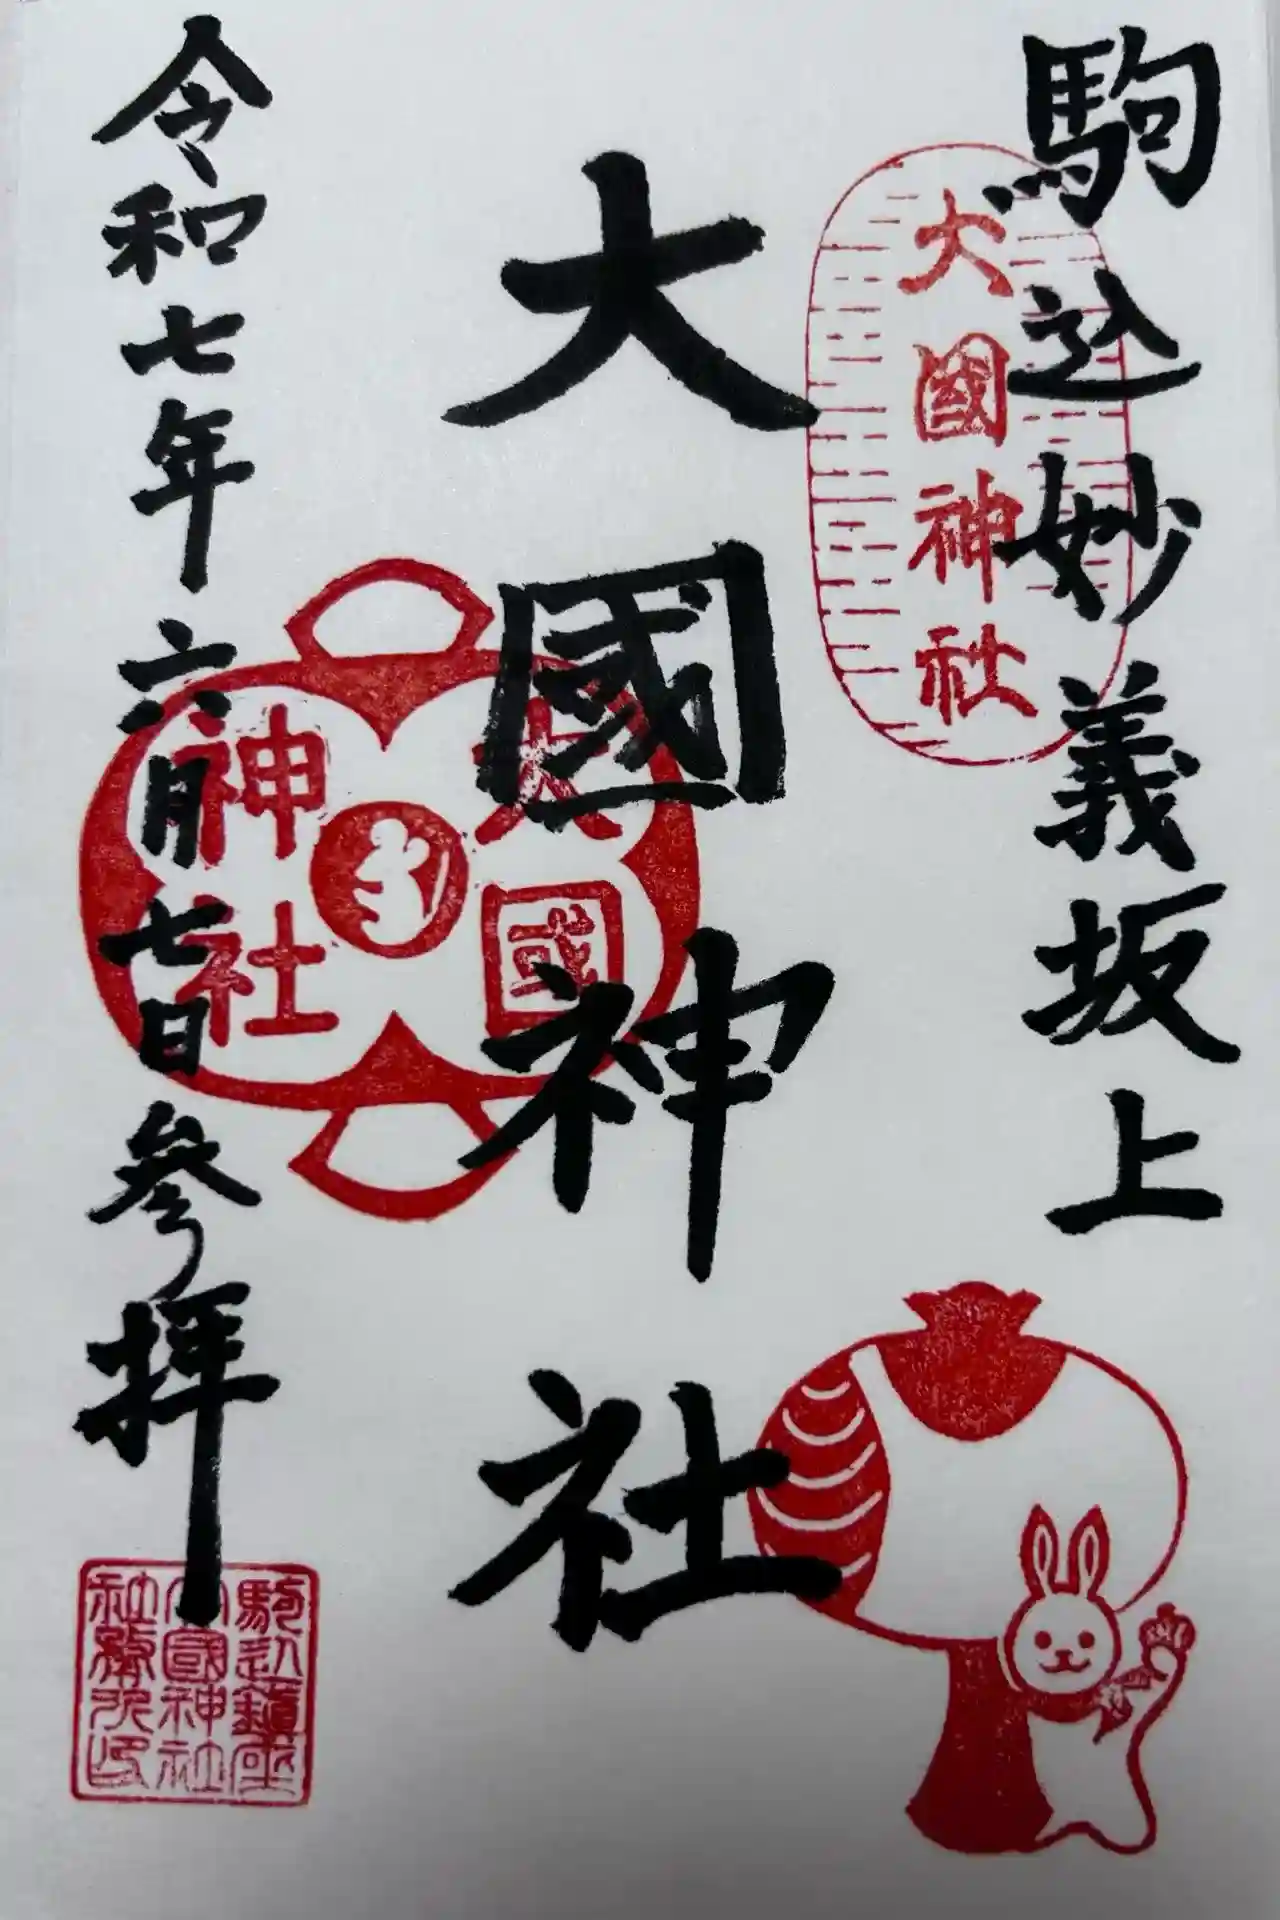 駒込妙義坂上
大國神社
大國神社
大國
神社
令和七年六月七日參拝
駒込鎮座
大國神社
社務所印